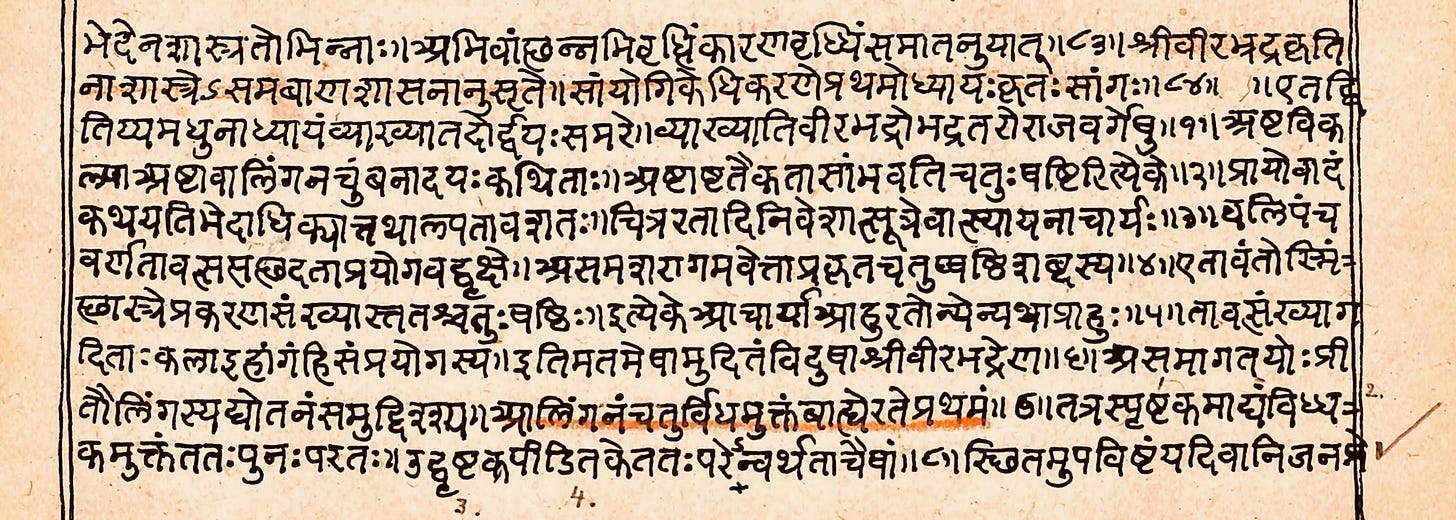 भेदेनशास्त्रतोभिन्नाः॥अभिवांछन्नभिवृद्धिंकारणवृध्धिंसमातनुयात्॥८३॥श्रीवीरभद्रकृति
नाशास्त्रेऽसमबाणशासनानुसृते॥सांयोगिकेधिकरणेप्रथमोध्यायःकृतःसांगः॥८४॥ ॥एतद्द्वि
तिय्यमधुनाध्यायंव्याख्यातदोर्द्वयःसमरे॥व्याख्यातिवीरभद्रोभद्रतरोराजवर्गेषु॥१॥अष्टविक
ल्पाअष्टावालिंगनचुंबनादयःकथिताः॥अष्टाष्टतैकतासांभवतिचतुःषष्टिरित्येके॥२॥प्रायोवादं
कथयतिभेदाधिक्यात्तथाल्पतावशतः॥चित्ररतादिनिवेशात्सूत्रेवात्स्यायनाचार्यः॥३॥वलिपंच
वर्णतावत्ससछदताप्रयोगवद्वृक्षे॥असमशरागमवेत्ताप्रकृतचतुष्षष्ठिशब्दस्य॥४॥एतावंतोस्मिं
छास्त्रेप्रकरणसंख्यास्ततश्चतुःषष्ठिः॥इत्येकेआचार्याआहुरतोन्येन्यथाप्राहुः॥५॥तावत्संख्याग
दिताःकलाइहांगंहिसंप्रयोगस्य॥इतिमतमेषामुदितंविदुषाश्रीवीरभद्रेण॥६॥असमागतयोःप्री
तौलिंगस्यद्योतनंसमुद्दिश्य॥आलिंगनंचतुर्विधमुक्तंबाह्येरतेप्रथमं॥७॥तत्रस्पृष्टकमाद्यंविध्य 2.
कमुक्तंततःपुनःपरतः॥उद्वृष्टकपीडितकेततःपरेन्वर्थताचैषां॥८॥स्छितमुपविष्टंयदिवानिजनमे
3. 4.